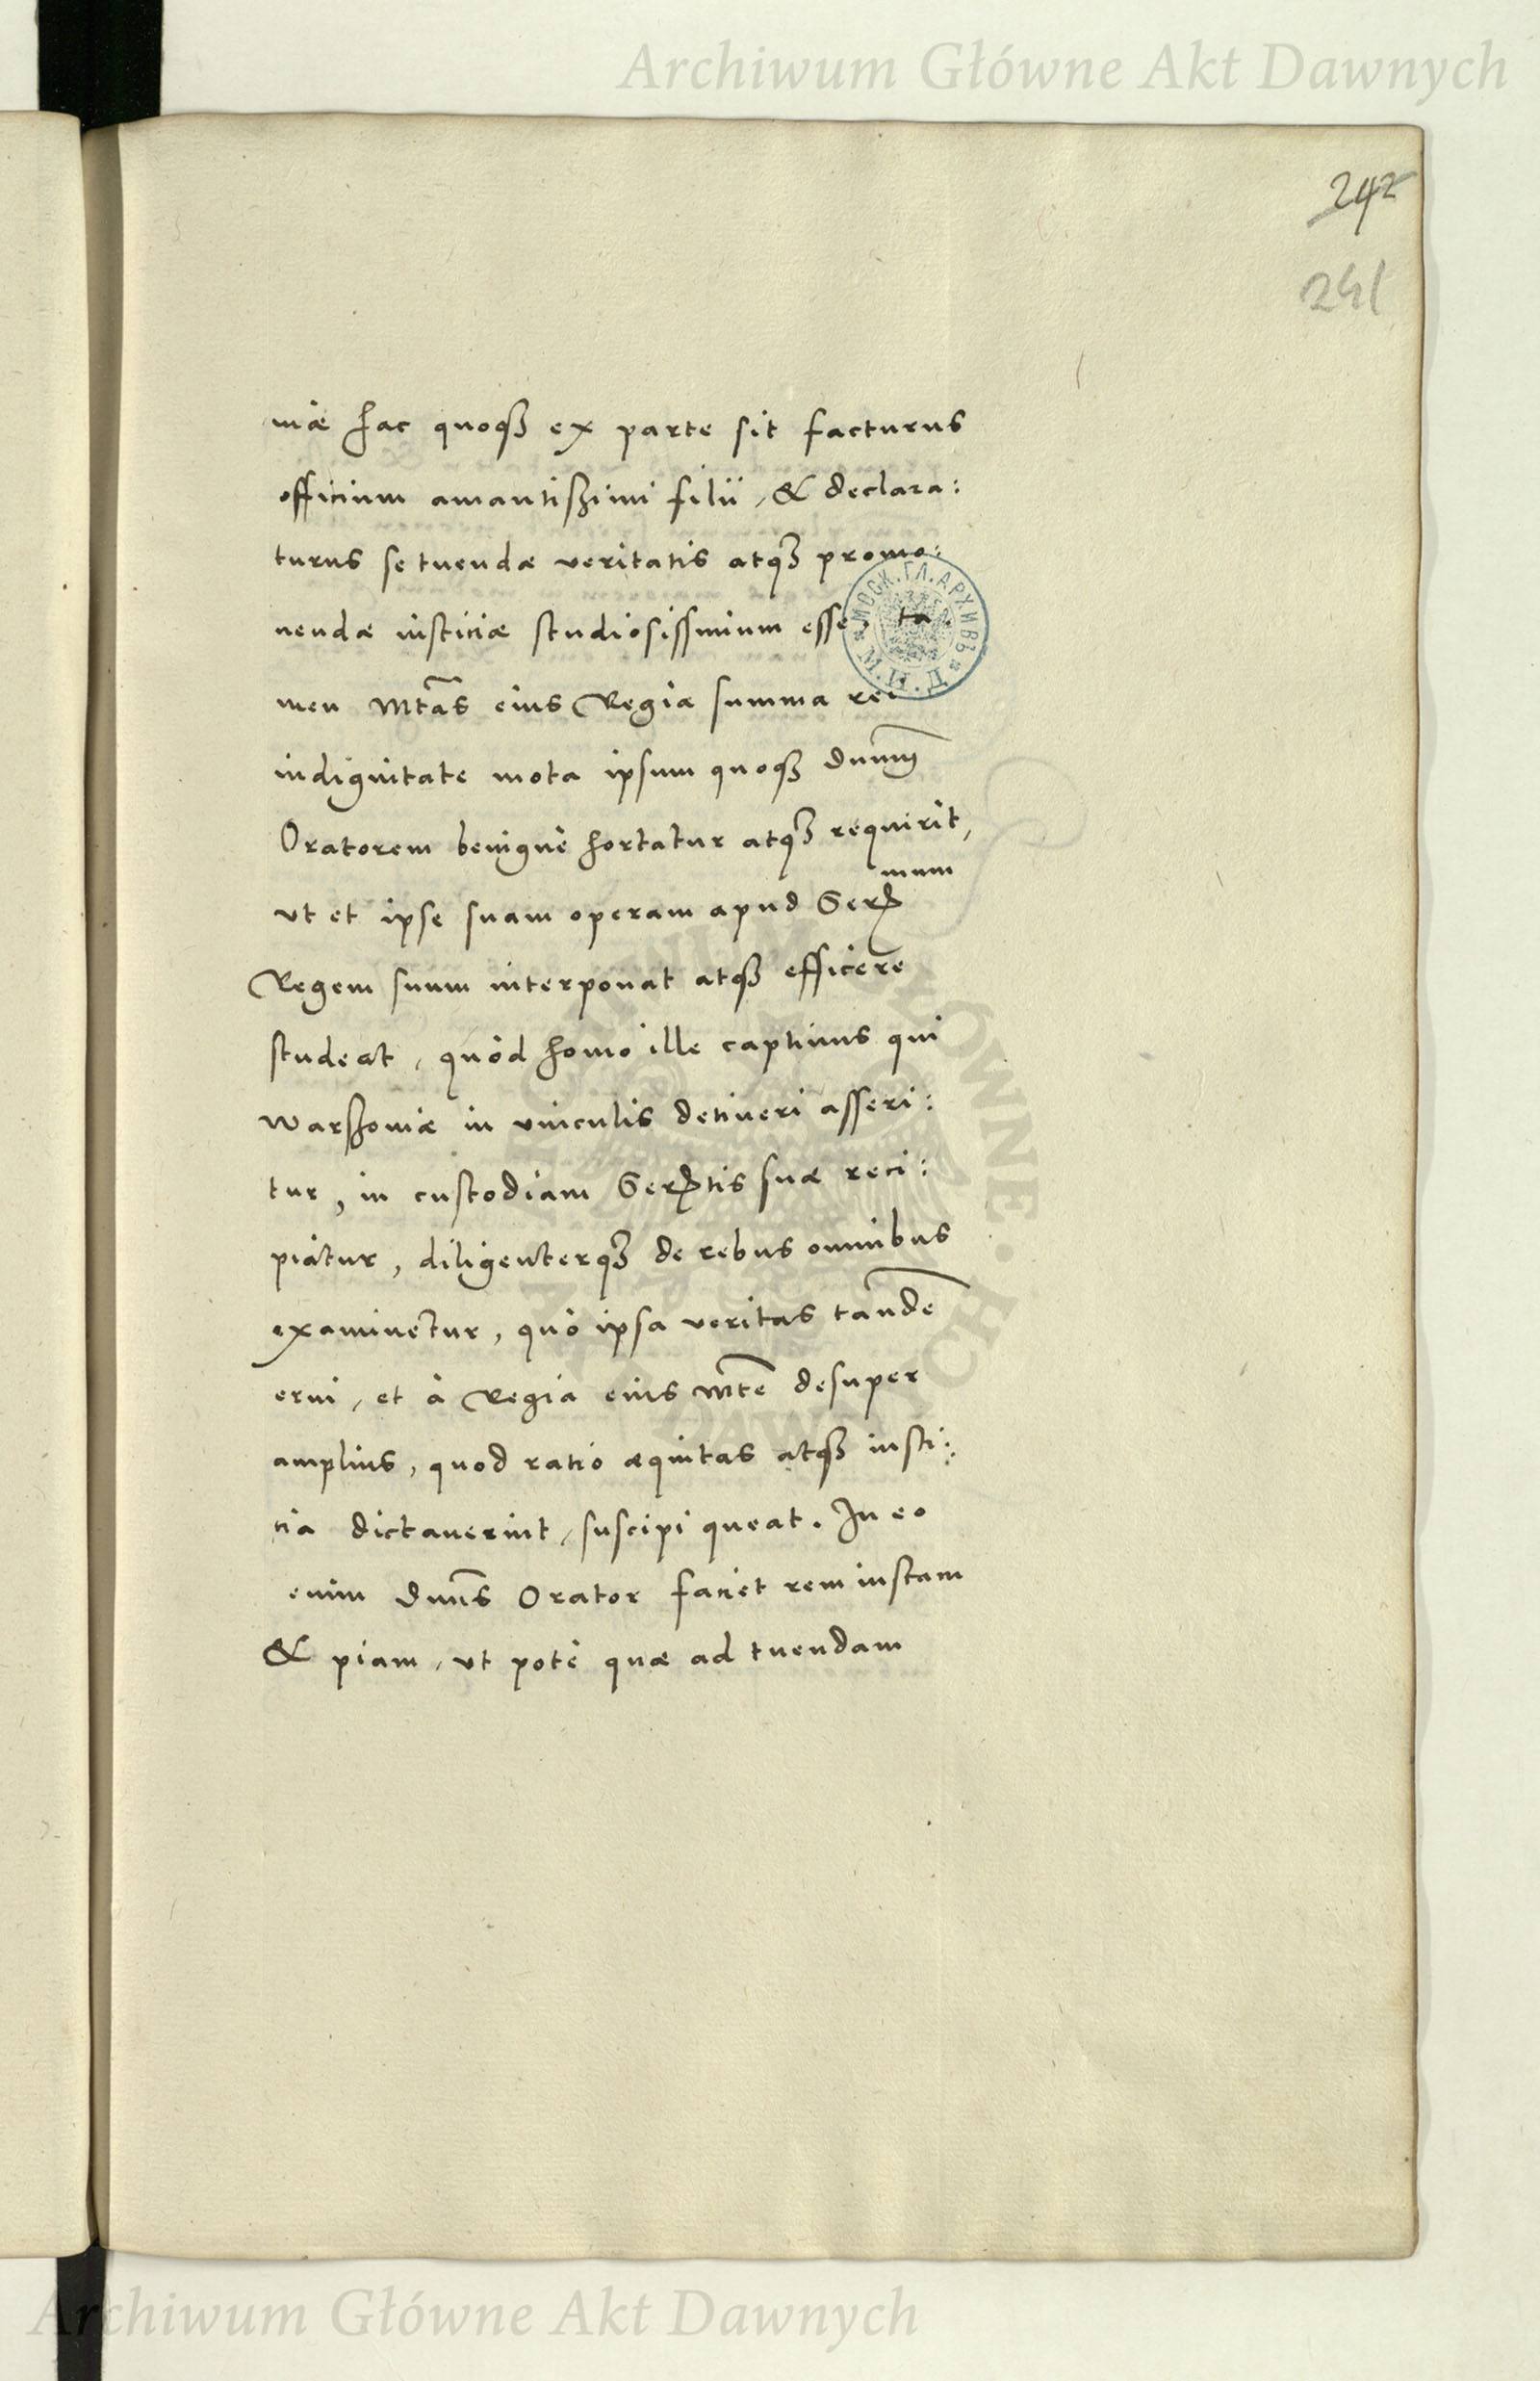 Archiwum Główne Akt Dawnych
242
241
niæ hac quoqꝫ ex parte sit facturus
officium amantißimi filii, & declara:
turus se tuendæ veritatis atqꝫ promo:
uendæ iusticiæ studiosissimum esse, ta
men Mtas eius Regia summa rei
indignitate mota ipsum quoqꝫ dnum
Oratorem benignè hortatur atqꝫ requirit,
vt et ipse suam operam apud Sermum
Regem suum interponat atqꝫ efficere
studeat, quòd homo ille captiuus qui
Warshouiæ in vinculis detineri asseri:
tur, in custodiam Sertis suæ reci:
piatur, diligenterqꝫ de rebus omnibus
examinetur, quò ipsa veritas tandē
erui, et à Regia eius Mte desuper
amplius, quod ratio æquitas atqꝫ iusti:
cia dictauerint, suscipi queat. In eo
enim Dnus Orator faciet rem iustam
& piam, vt potè quæ ad tuendam
МОСК.ГЛ.АРХИВЪ
М.И.Д.
ARCHIWUM GŁÓWNE AKT DAWNYCH
Archiwum Główne Akt Dawnych